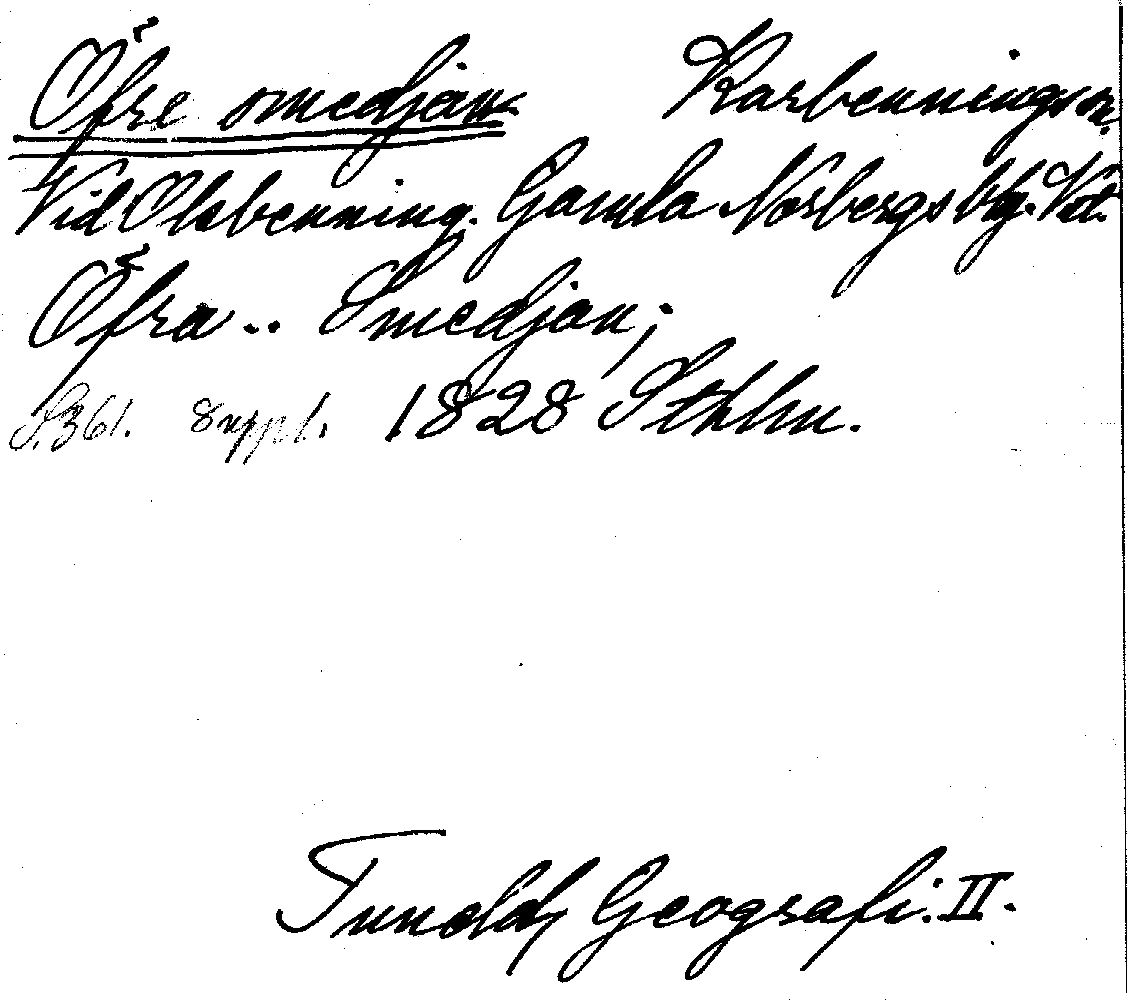 Öfre smedjan Karbenningsn.
Vid Olsbenning. Gamla Norbergs Bhg. Vstl.
Öfra .. Smedjan;
S. 361. Suppl. 1828 Sthlm.
Tunelds Geografi. II.